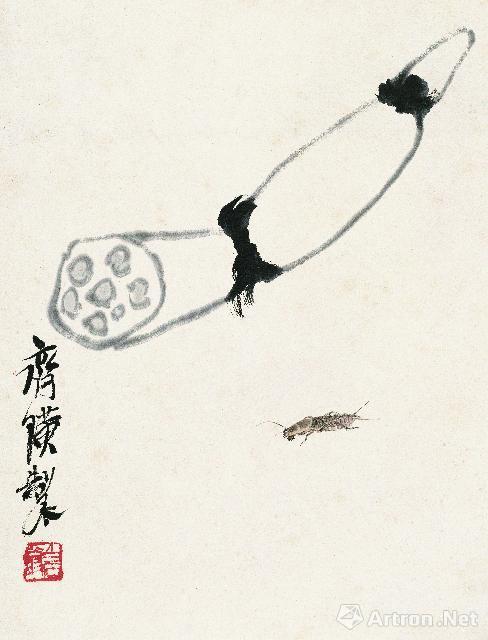 齊璜製
Artron.Net